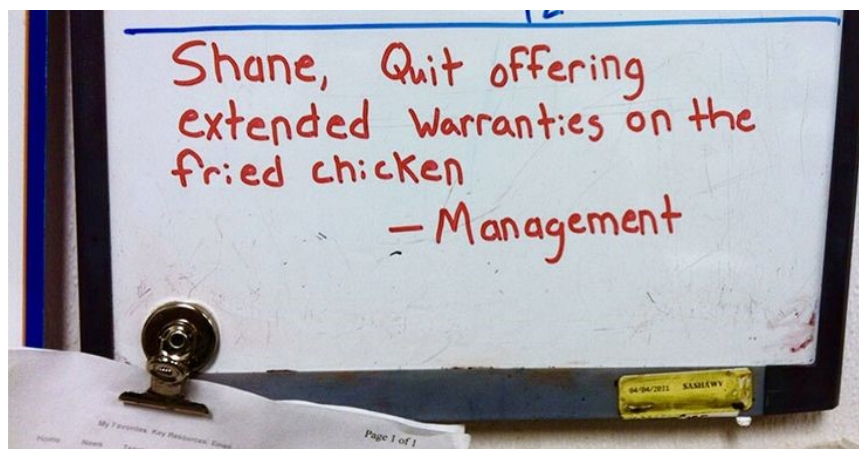 Shane, Quit offering
extended Warranties on the
fried chicken
— Management
04/04/2011 SASHAWY
My Favorites Key Resources
Page 1 of 1
Home News